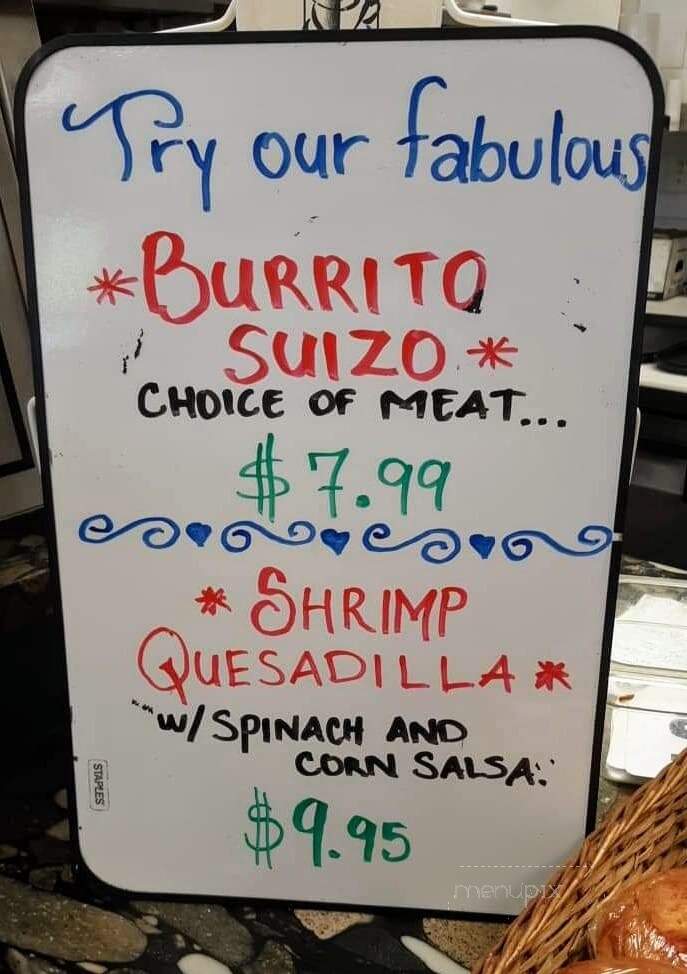 Try our fabulous
*BURRITO
SUIZO *
CHOICE OF MEAT...
$7.99
* SHRIMP
QUESADILLA *
W/ SPINACH AND
CORN SALSA
$9.95
STAPLES
menupix